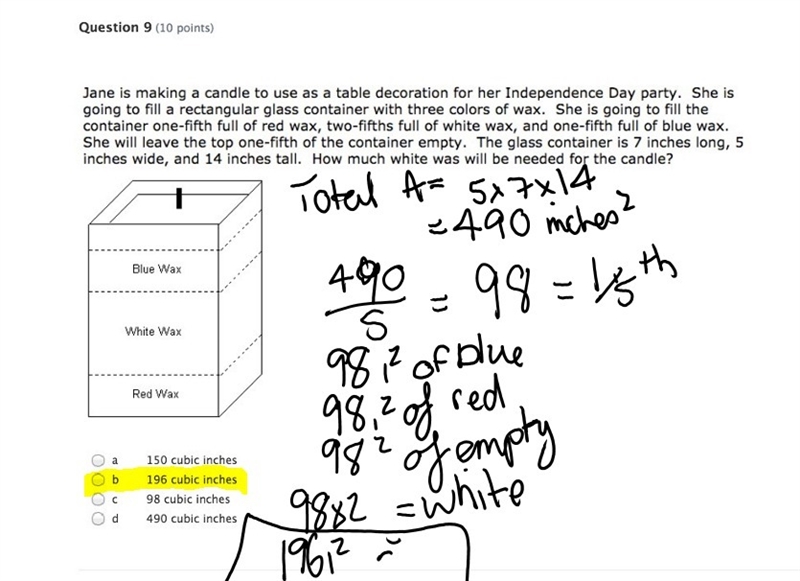 Question 9 (10 points)
Jane is making a candle to use as a table decoration for her Independence Day party. She is
going to fill a rectangular glass container with three colors of wax. She is going to fill the
container one-fifth full of red wax, two-fifths full of white wax, and one-fifth full of blue wax.
She will leave the top one-fifth of the container empty. The glass container is 7 inches long, 5
inches wide, and 14 inches tall. How much white was will be needed for the candle?
Total A= 5x7x14
=490 inches²
490/5 = 98 = 1/5th
98,² of blue
98,² of red
98² of empty
98x2 = white
196,²
Blue Wax
White Wax
Red Wax
a 150 cubic inches
b 196 cubic inches
c 98 cubic inches
d 490 cubic inches